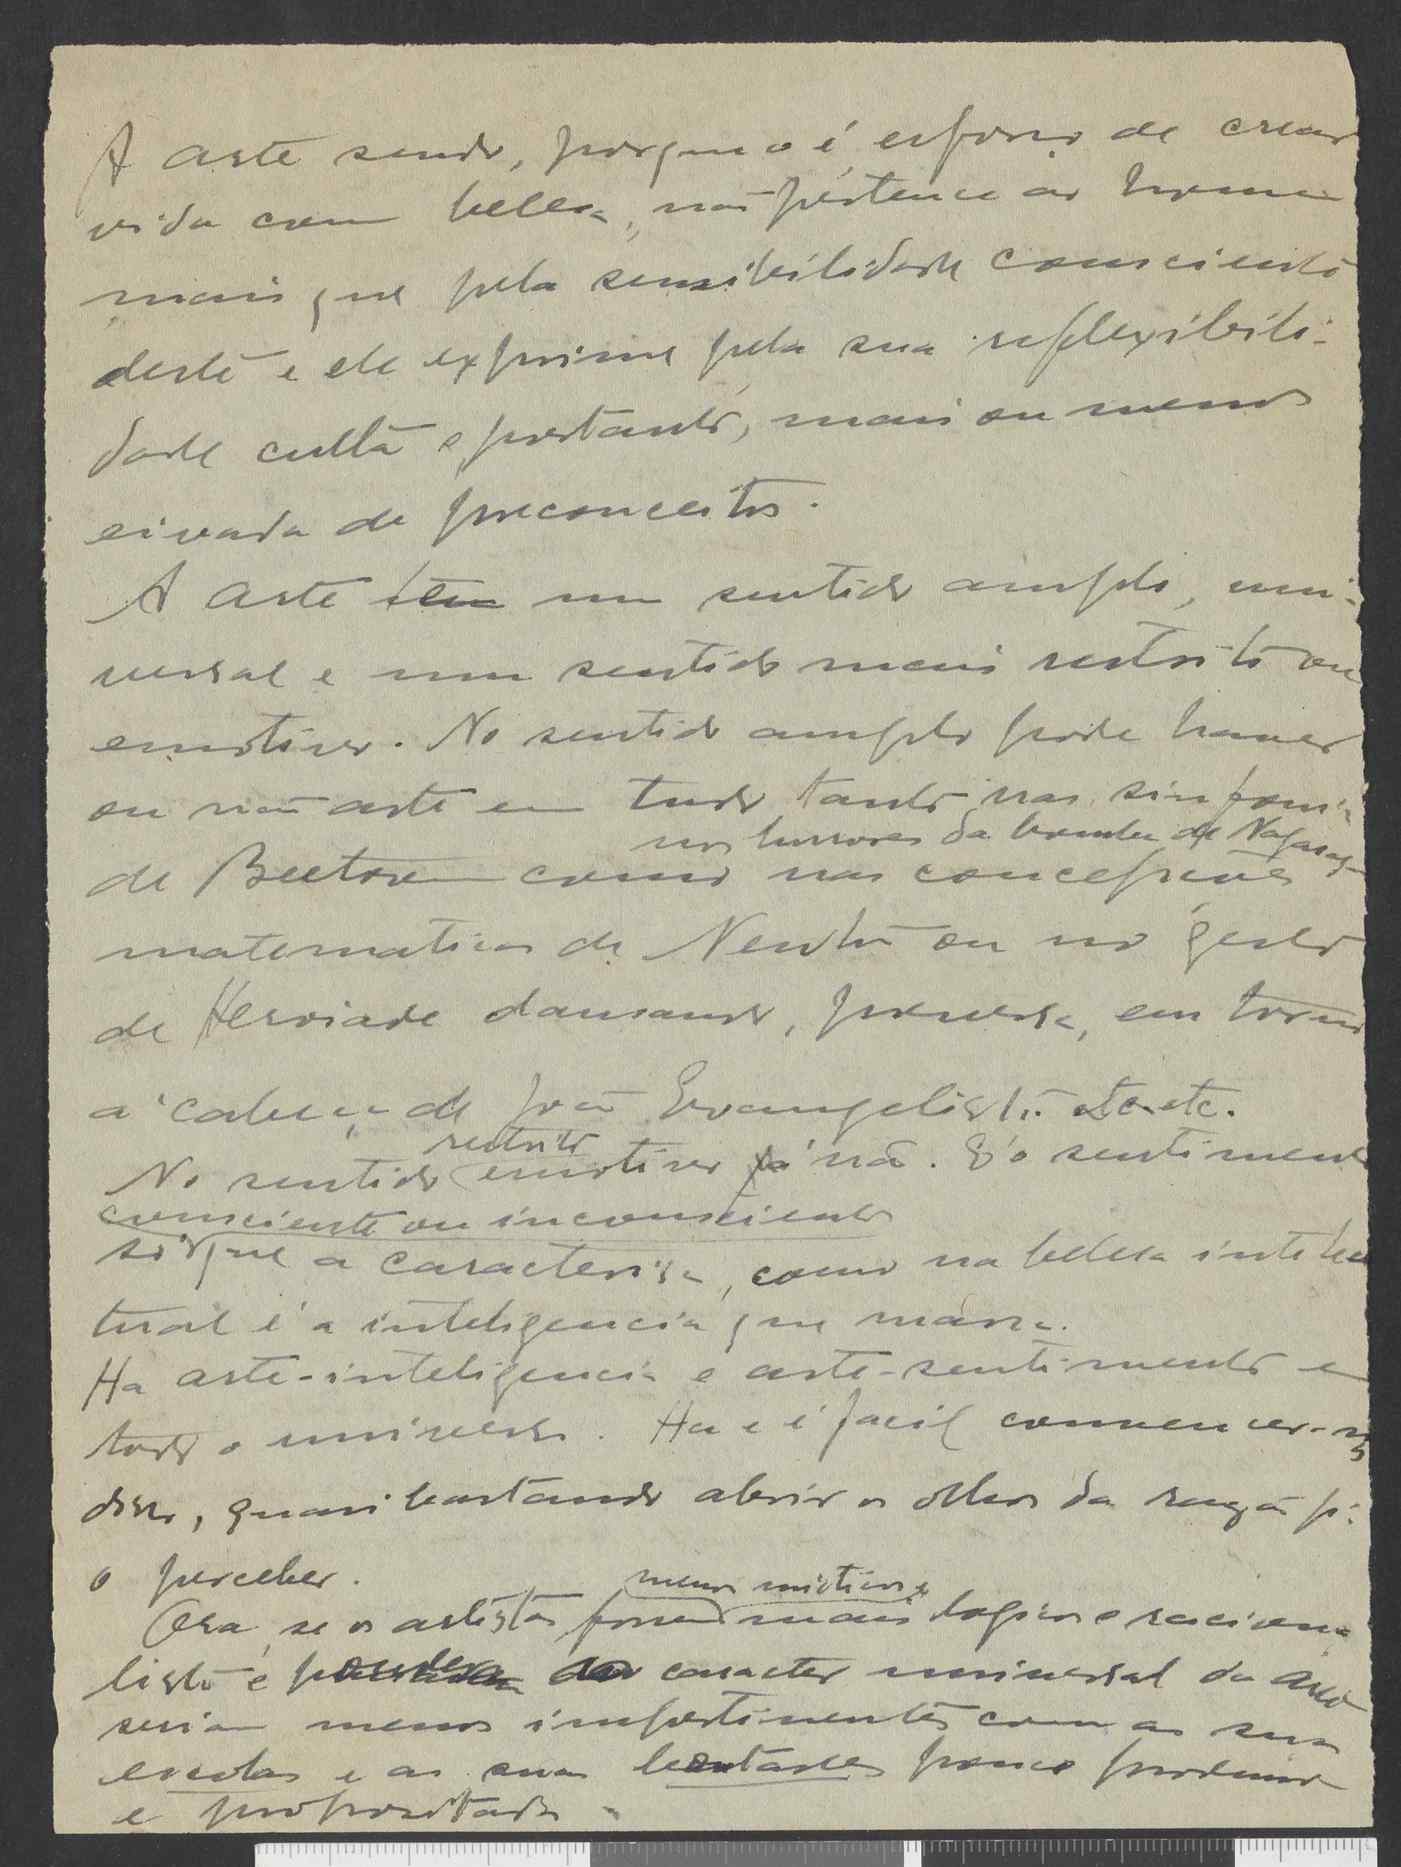 A arte sendo, porque o é, esforço de crear
vida com belesa, não pertence ao homem
mais que pela sensibilidade consciente
deste e ele exprime pela sua reflexibili-
dade culta e portanto, mais ou menos
eivada de preconceitos.
A arte tem um sentido amplo, uni-
versal e um sentido mais restrito ou
emotivo. No sentido amplo pode haver
ou não arte em tudo tanto nas sinfonias
nos horrores da bomba de Nagasaqui
de Beetoven como nas concepções
matematicas de Newton ou no gesto
de Herodiade dansando, perversa, em torno
a cabeça de João Evangelista etc. etc.
restrito
No sentido emotivo já não. É o sentimento
consciente ou inconsciente
só que a caracterisa, como na belesa intelec
tual é a inteligencia que marca.
Ha arte-inteligencia e arte-sentimento em
todo o universo. Ha e é facil convencer-nos
disso, quasi bastando abrir os olhos da rasão p.ª
o perceber.
menos emotivos e
Ora, se os artistas fossem mais logicos e raciona
listas e caracter universal da arte
seriam menos impertinentes com as suas
escolas e as suas pouco
e propositada.